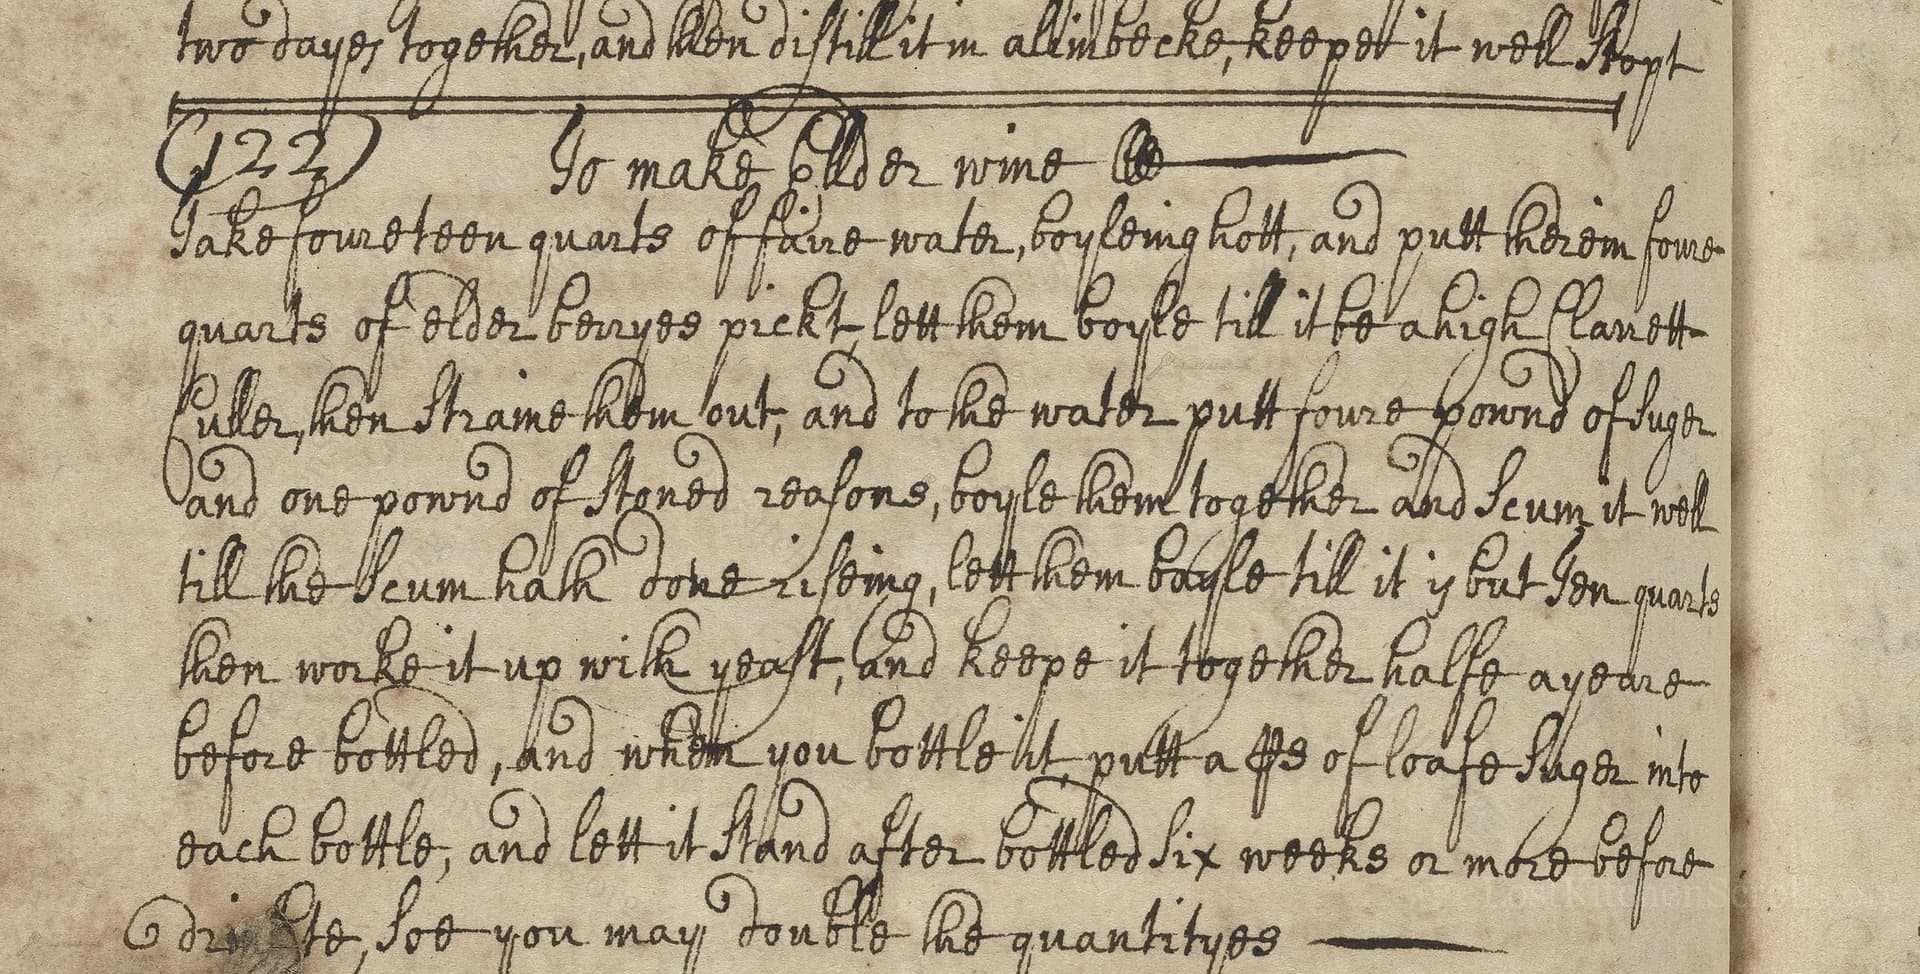 two dayes together, and then distill it in a limbecke, keepe it well stopt
(122) To make Ellder wine
Take foureteen quarts of faire water, boyleing hott, and putt therein foure
quarts of elder berryes pickt, lett them boyle till it be a high Clarett
Culler, then straine them out, and to the water putt foure pownd of suger
and one pownd of stoned reasons, boyle them together and scum it well
till the scum hath done riseing, lett them boyle till it is but Ten quarts
then worke it up with yeast, and keepe it together halfe a yeare
before bottled, and when you bottle it, putt a ps of loafe suger into
each bottle, and lett it stand after bottled six weeks or more before
soe you may double the quantityes
LostKitchenScrolls.org